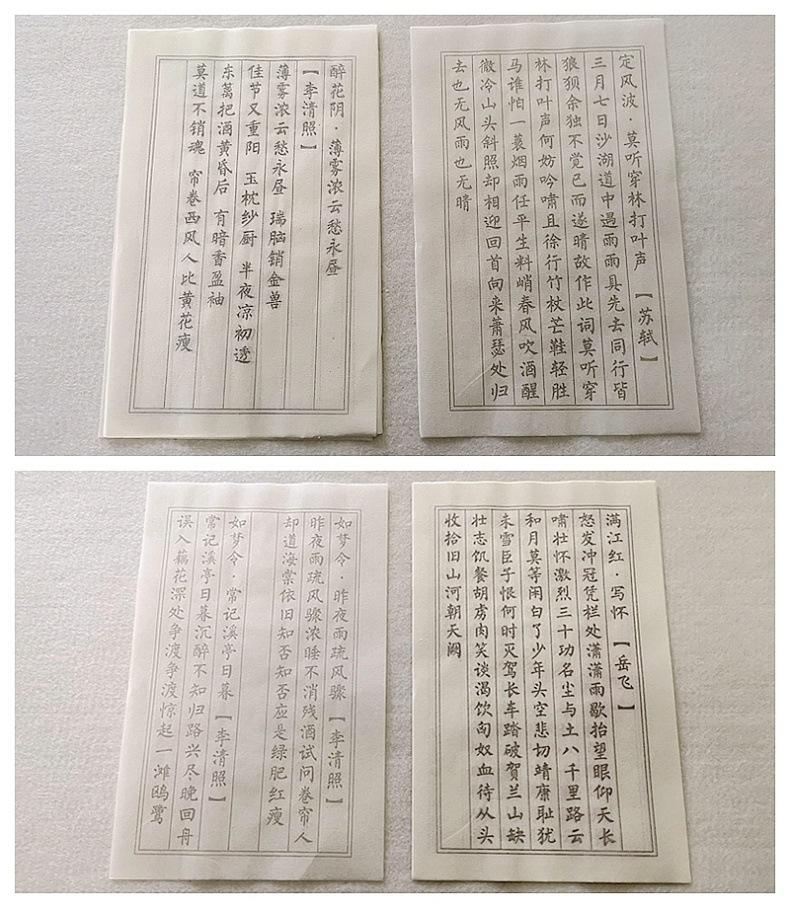 醉花阴·薄雾浓云愁永昼
【李清照】
薄雾浓云愁永昼 瑞脑销金兽
佳节又重阳 玉枕纱厨 半夜凉初透
东篱把酒黄昏后 有暗香盈袖
莫道不销魂 帘卷西风 人比黄花瘦
定风波·莫听穿林打叶声【苏轼】
三月七日沙湖道中遇雨雨具先去同行皆
狼狈余独不觉已而遂晴故作此词莫听穿
林打叶声何妨吟啸且徐行竹杖芒鞋轻胜
马谁怕一蓑烟雨任平生料峭春风吹酒醒
微冷山头斜照却相迎回首向来萧瑟处归
去也无风雨也无晴
如梦令·昨夜雨疏风骤【李清照】
昨夜雨疏风骤浓睡不消残酒试问卷帘人
却道海棠依旧知否知否应是绿肥红瘦
如梦令·常记溪亭日暮【李清照】
常记溪亭日暮沉醉不知归路兴尽晚回舟
误入藕花深处争渡争渡惊起一滩鸥鹭
满江红·写怀【岳飞】
怒发冲冠凭栏处潇潇雨歇抬望眼仰天长
啸壮怀激烈三十功名尘与土八千里路云
和月莫等闲白了少年头空悲切靖康耻犹
未雪臣子恨何时灭驾长车踏破贺兰山缺
壮志饥餐胡虏肉笑谈渴饮匈奴血待从头
收拾旧山河朝天阙